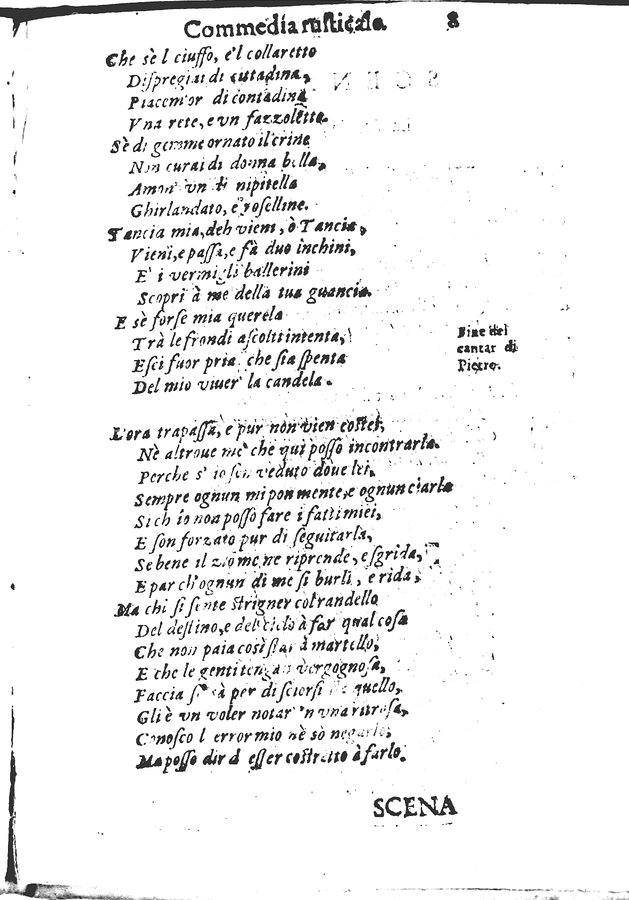 Commedia rusticale. 8
Che sè l ciuffo, e'l collaretto
Dispregiai di cittadina,
Piacemor di contadina
Vna rete, e vn fazzoletto.
Sè di gemme ornato il crine
Non curai di donna bella,
Amor vn nipitella
Ghirlandato, e roselline.
Tancia mia, deh vieni, ò Tancia,
Vieni, e passa, e fà duo inchini,
E' i vermigli ballerini
Scopri à me della tua guancia.
E sè forse mia querela
Trà le frondi ascolti intenta,
Esci fuor pria che sia spenta
Del mio viuer la candela.
Fine del
cantar di
Pietro.
L'ora trapassa, e pur non vien costei,
Nè altroue me che qui posso incontrarla.
Perche s' io son veduto doue lei,
Sempre ognun mi pon mente, e ognun ciarla
Sich io non posso fare i fatti miei,
E son forzato pur di seguitarla,
Se bene il zio me ne riprende, e sgrida,
E par ch'ognun di me si burli, e rida,
Ma chi si sente strigner col randello
Del destino, e del cielo à far qual cosa
Che non paia così star à martello,
E che le genti tengan vergognosa,
Faccia sà per disciorsi da quello,
Gli è vn voler notar 'n vna ritrosa,
Conosco l error mio nè sò negarlo,
Ma posso dir d esser costretto à farlo.
SCENA